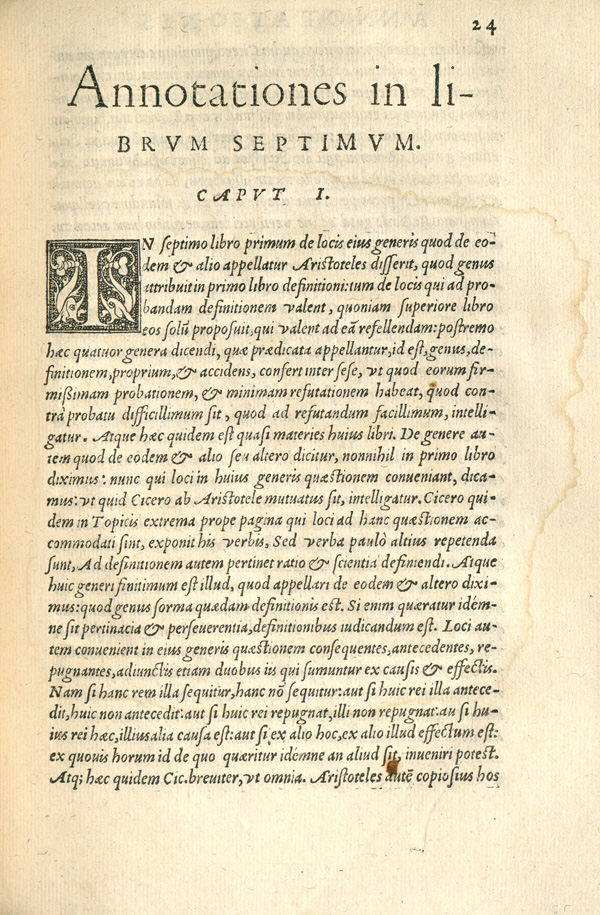 24
Annotationes in li-
BRVM SEPTIMVM.
CAPVT I.
IN septimo libro primum de locis eius generis quod de eo-
dem & alio appellatur Aristoteles disserit, quod genus
attribuit in primo libro definitioni: tum de locis qui ad pro-
bandam definitionem valent, quoniam superiore libro
eos solũ proposuit, qui valent ad eã refellendam: postremo
hæc quatuor genera dicendi, quæ prædicata appellantur, id est, genus, de-
finitionem, proprium, & accidens, confert inter sese, vt quod eorum fir-
missimam probationem, & minimam refutationem habeat, quod con-
trà probatu difficillimum sit, quod ad refutandum facillimum, intelli-
gatur. Atque hæc quidem est quasi materies huius libri. De genere au-
tem quod de eodem & alio seu altero dicitur, nonnihil in primo libro
diximus: nunc qui loci in huius generis quæstionem conueniant, dica-
mus: vt quid Cicero ab Aristotele mutuatus sit, intelligatur. Cicero qui-
dem in Topicis extrema prope pagina qui loci ad hanc quæstionem ac-
commodati sint, exponit his verbis, Sed verba paulò altius repetenda
sunt, Ad definitionem autem pertinet ratio & scientia definiendi. Atque
huic generi finitimum est illud, quod appellari de eodem & altero dixi-
mus: quod genus forma quædam definitionis est. Si enim quæratur idém-
ne sit pertinacia & perseuerentia, definitionibus iudicandum est. Loci au-
tem conuenient in eius generis quæstionem consequentes, antecedentes, re-
pugnantes, adiunctis etiam duobus iis qui sumuntur ex causis & effectis.
Nam si hanc rem illa sequitur, hanc nõ sequitur: aut si huic rei illa antece-
dit, huic non antecedit: aut si huic rei repugnat, illi non repugnat: au si hu-
ius rei hæc, illius alia causa est: aut si ex alio hoc, ex alio illud effectum est:
ex quouis horum id de quo quæritur idémne an aliud sit, inueniri potest.
Atq; hæc quidem Cic. breuiter, vt omnia. Aristoteles autẽ copiosius hos